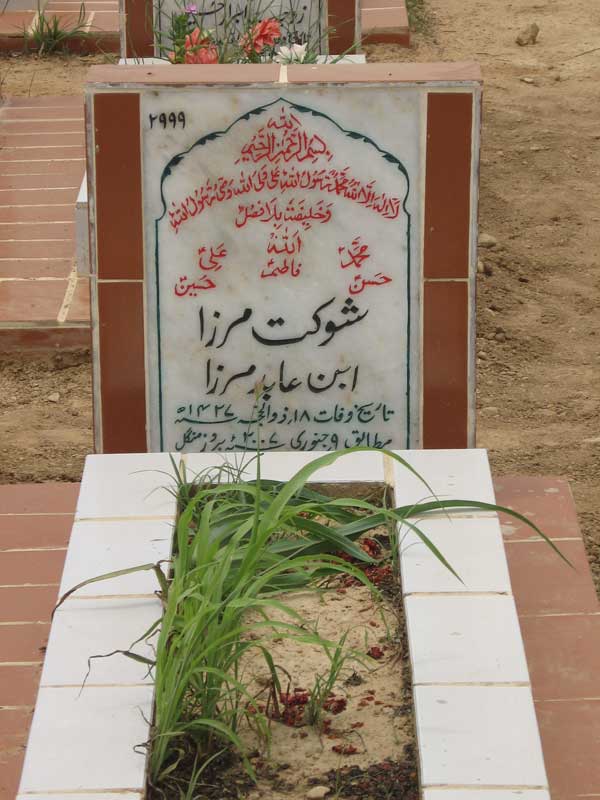 ۲۹۹۹
الله
بسم الله الرحمن الرحيم
لا اله الا الله محمد رسول الله علی ولی الله وصی رسول الله
وخلیفتہ بلا فصل
محمد الله علی
حسن فاطمہ حسین
شوکت مرزا
ابن عابد مرزا
تاریخ وفات ۱۸؍ ذوالحجہ ۱۴۲۷ھ
مطابق ۹ جنوری ۲۰۰۷ء بروز منگل